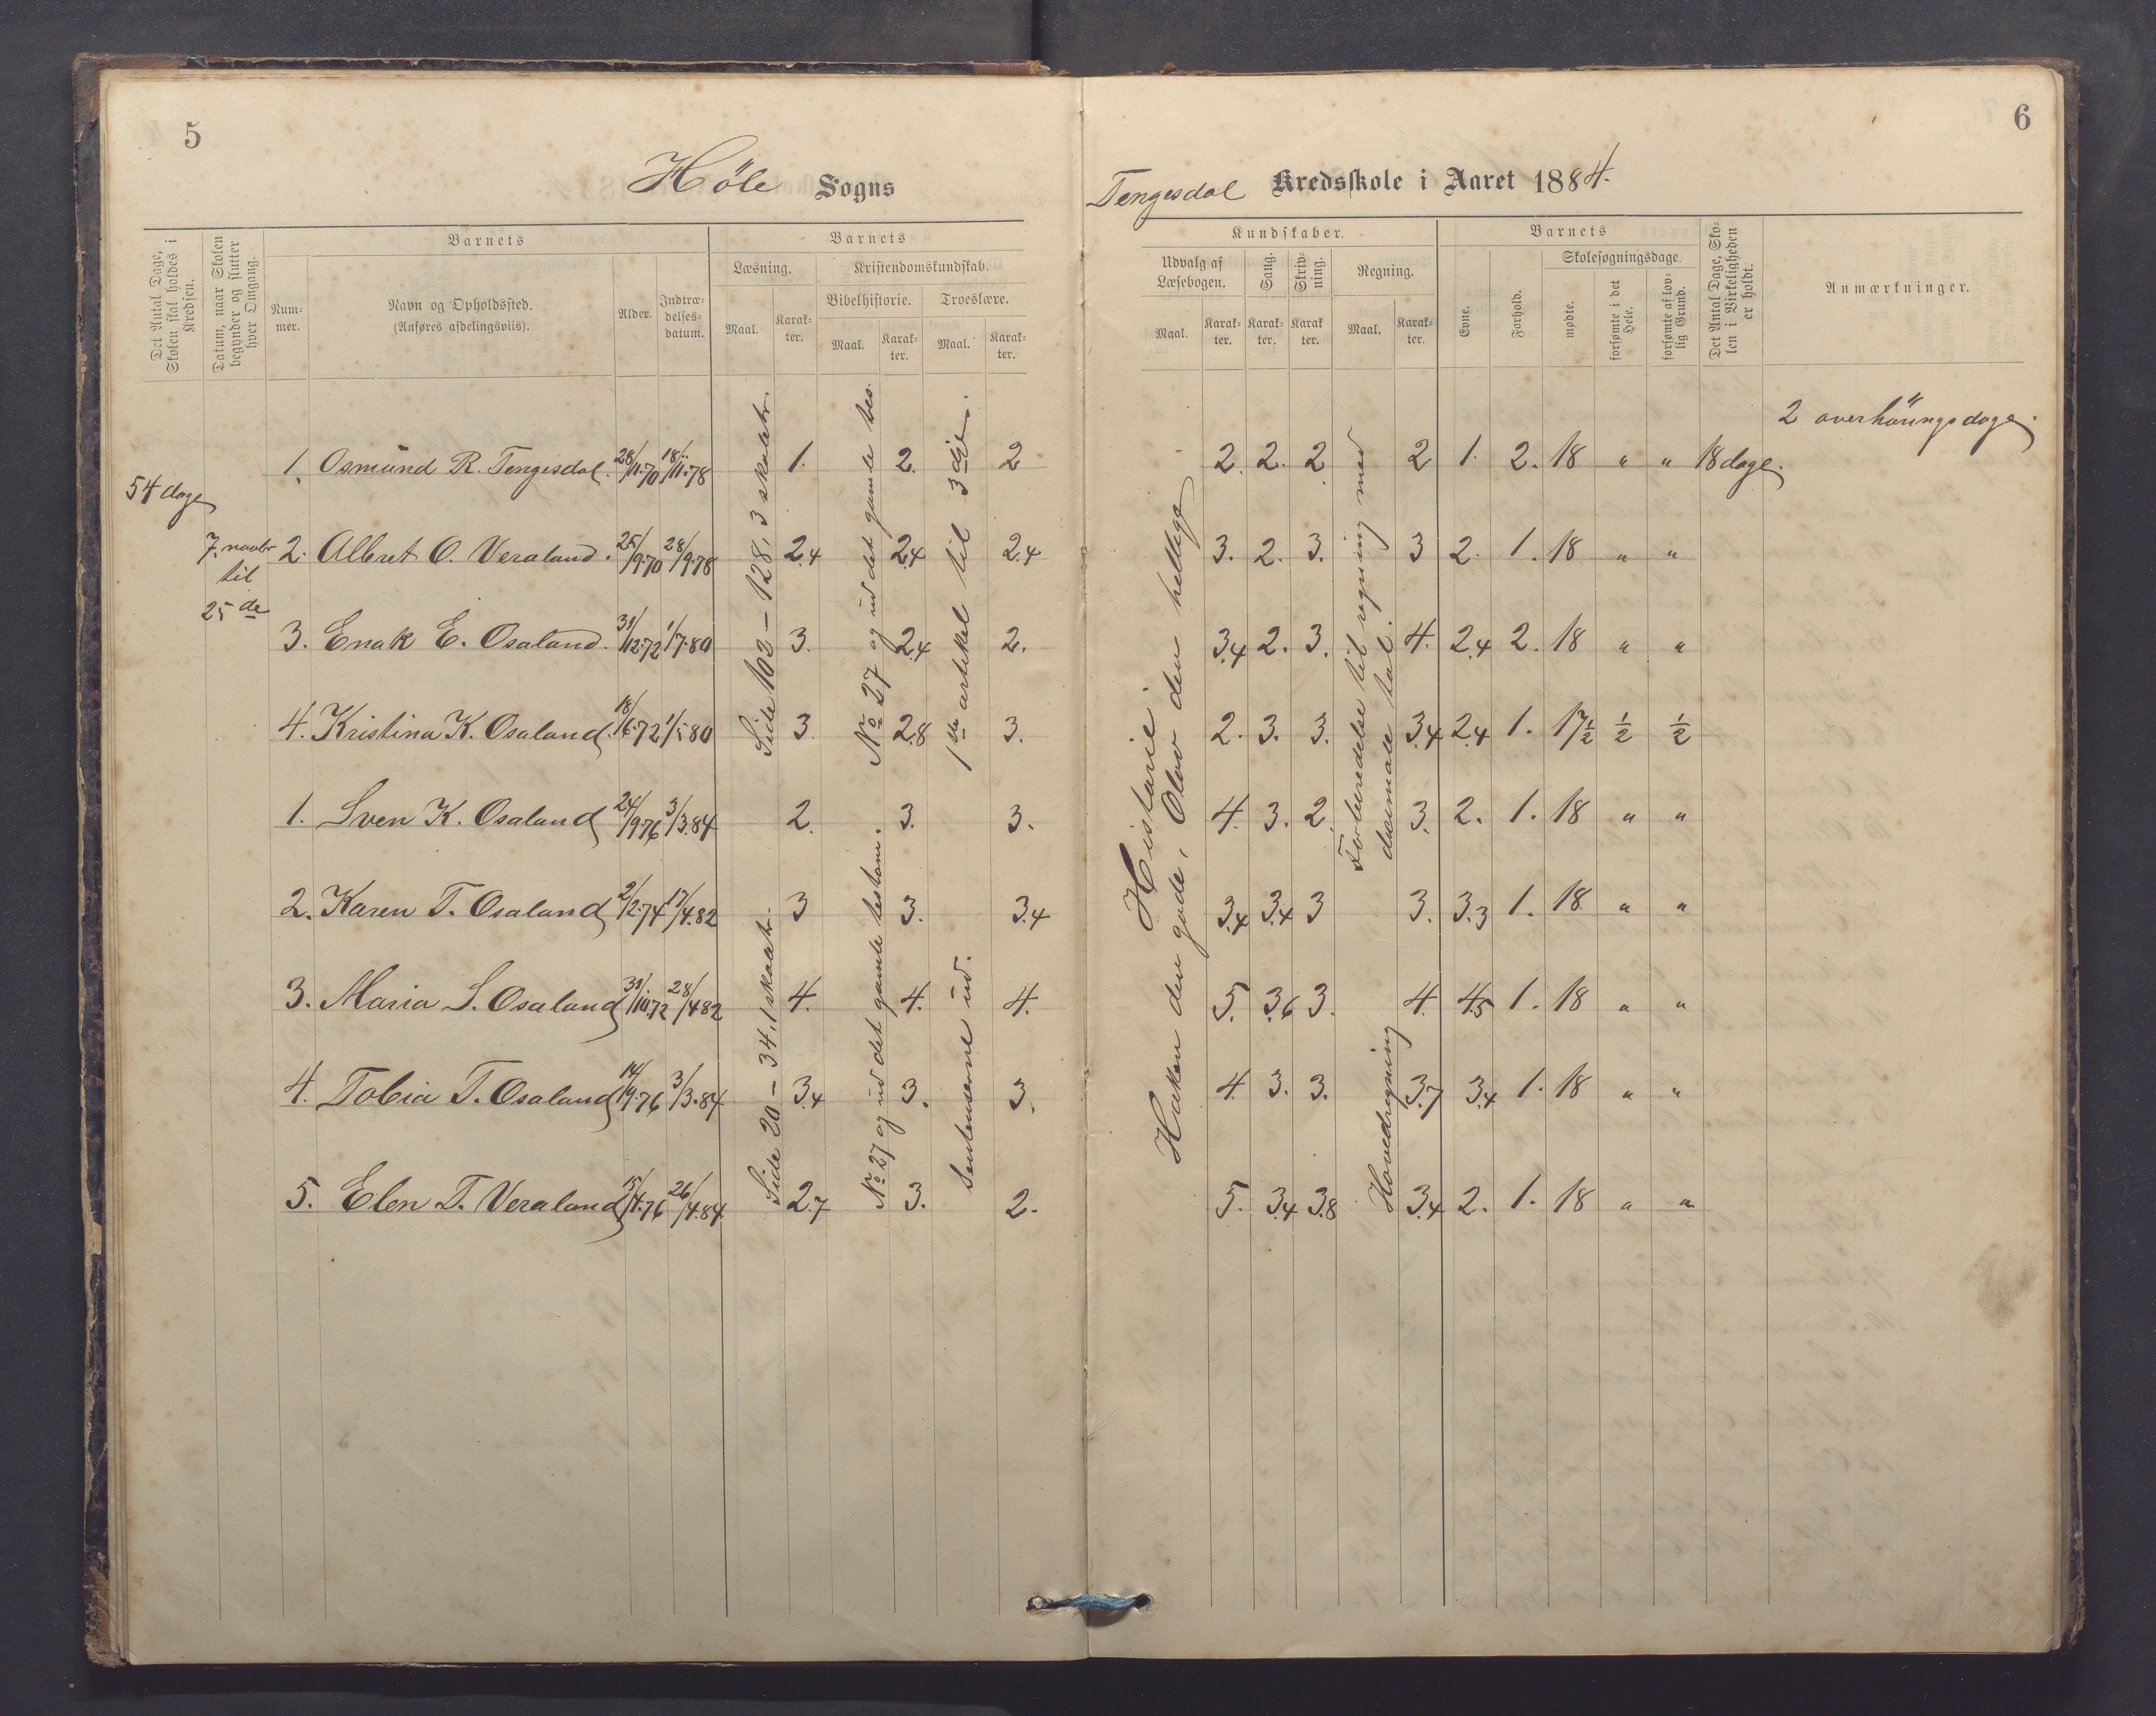 5
Höle Sogns
Det Antal Dage, Skolen skal holdes i Kredsen.
Datum, naar Skolen begynder og slutter hver Omgang.
Barnets
Num-mer.
Navn og Opholdssted.
(Anføres afdelingsviis).
Alder.
Indtræ-delses-datum.
Barnets
Læsning.
Kristendomskundskab.
Bibelhistorie.
Troeslære.
Maal.
Karak-ter.
Maal.
Karak-ter.
Maal.
Karak-ter.
54 dage
7. novbr
til
25 de
1. Osmund R. Tengesdal. 28/11.70 18/11.78 1. 2. 2
2. Albret O. Veraland. 25/9.70 28/9.78 2.4 2.4 2.4
3. Enok E. Osaland. 31/12.72 1/7.80 3. 2.4 2.
4. Kristina K. Osaland. 18/6.72 1/5.80 3. 2.8 3.
1. Sven K. Osaland 24/9.76 3/3.84 2. 3. 3.
2. Karen T. Osaland 2/2.74 17/4.82 3 3. 3.4
3. Maria S. Osaland 31/10.72 28/4.82 4. 4. 4.
4. Tobia T. Osaland 14/9.76 3/3.84 3.4 3. 3.
5. Elen T. Veraland 15/4.76 26/4.84 2.7 3. 2.
Side 103 – 128, 3 skoletr.
No 27 og ud det gamle tes.
1ste artikel til 3die.
Side 20 – 34, 1 skoletr.
No 27 og ud det gamle testam.
Sentenserne ud.
6
Tengesdal Kredsskole i Aaret 1884.
Kundskaber.
Udvalg af Læsebogen.
Sang.
Skriv-ning.
Regning.
Maal.
Karak-ter.
Karak-ter.
Karak-ter.
Maal.
Karak-ter.
Barnets
Evne.
Forhold.
Skolesøgningsdage.
mødte.
forsømte i det Hele.
forsømte af lov-lig Grund.
Det Antal Dage, Sko-len i Virkeligheden er holdt.
Anmærkninger.
2 overhöringsdage.
2. 2. 2 2 1. 2. 18 " " 18 dage.
3. 2. 3. 3 2. 1. 18 " "
3.4 2. 3. 4. 2.4 2. 18 " "
2. 3. 3. 3.4 2.4 1. 17½ ½ ½
4. 3. 2. 3. 2. 1. 18 " "
3.4 3.4 3 3. 3.3 1. 18 " "
5. 3.6 3. 4. 4.5 1. 18 " "
4. 3. 3. 3.7 3.4 1. 18 " "
5. 3.4 3.8 3.4 2. 1. 18 " "
Historie:
Hakon den gode, Olav den hellige
Forberedelse til regning med
decimale tal.
Hovedregning